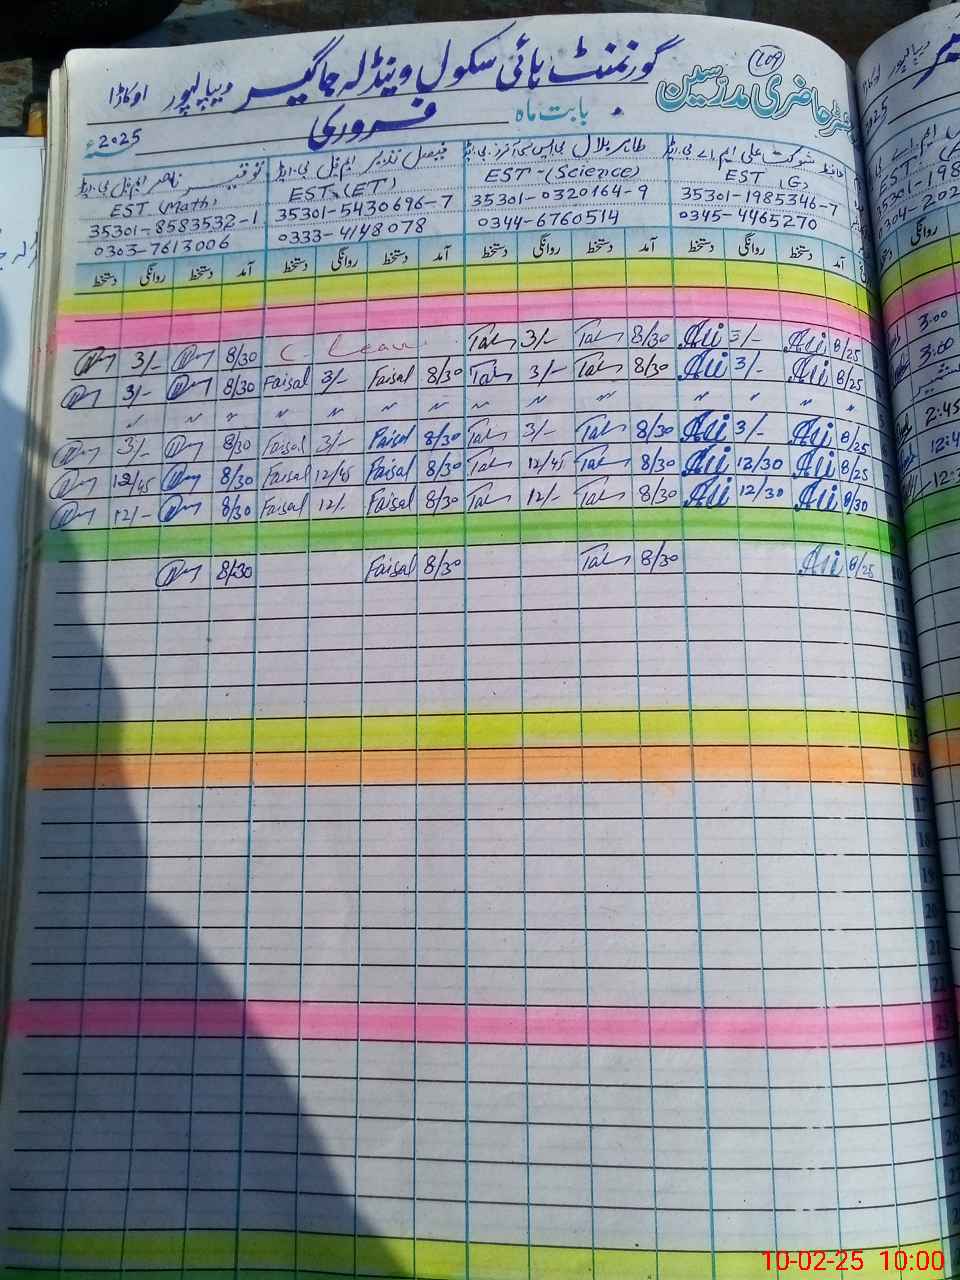 109
حاضری مدرسین
گورنمنٹ ہائی سکول وینڈلہ جاگیر دیپالپور اوکاڑا
بابت ماہ فروری 2025ء
حافظ شوکت علی ایم اے بی ایڈ
EST (G)
35301-1985346-7
0345-4465270
طاہر بلال بی ایس سی آنرز بی ایڈ
EST-(Science)
35301-0320164-9
0344-6760514
فیصل نذیر ایم فل بی ایڈ
EST (ET)
35301-5430696-7
0333-4148078
توقیر ناصر ایم فل بی ایڈ
EST (Math)
35301-8583532-1
0303-7613006
آمد دستخط روانگی دستخط آمد دستخط روانگی دستخط آمد دستخط روانگی دستخط آمد دستخط روانگی دستخط
3/- 8/30 C. Leave Tah 3/- Tah 8/30 Ali 3/- Ali 8/25
3/- 8/30 Faisal 3/- Faisal 8/30 Tah 3/- Tah 8/30 Ali 3/- Ali 8/25
" " " " " " " " " " " " " " " "
3/- 8/30 Faisal 3/- Faisal 8/30 Tah 3/- Tah 8/30 Ali 3/- Ali 8/25
12/45 8/30 Faisal 12/45 Faisal 8/30 Tah 12/45 Tah 8/30 Ali 12/30 Ali 8/25
12/- 8/30 Faisal 12/- Faisal 8/30 Tah 12/- Tah 8/30 Ali 12/30 Ali 8/30
8:30 Faisal 8/30 Tah 8/30 Ali 8/25
10
11
12
13
14
15
16
17
18
19
20
21
22
23
24
25
26
3.00
3.00
2:45
10-02-25 10:00